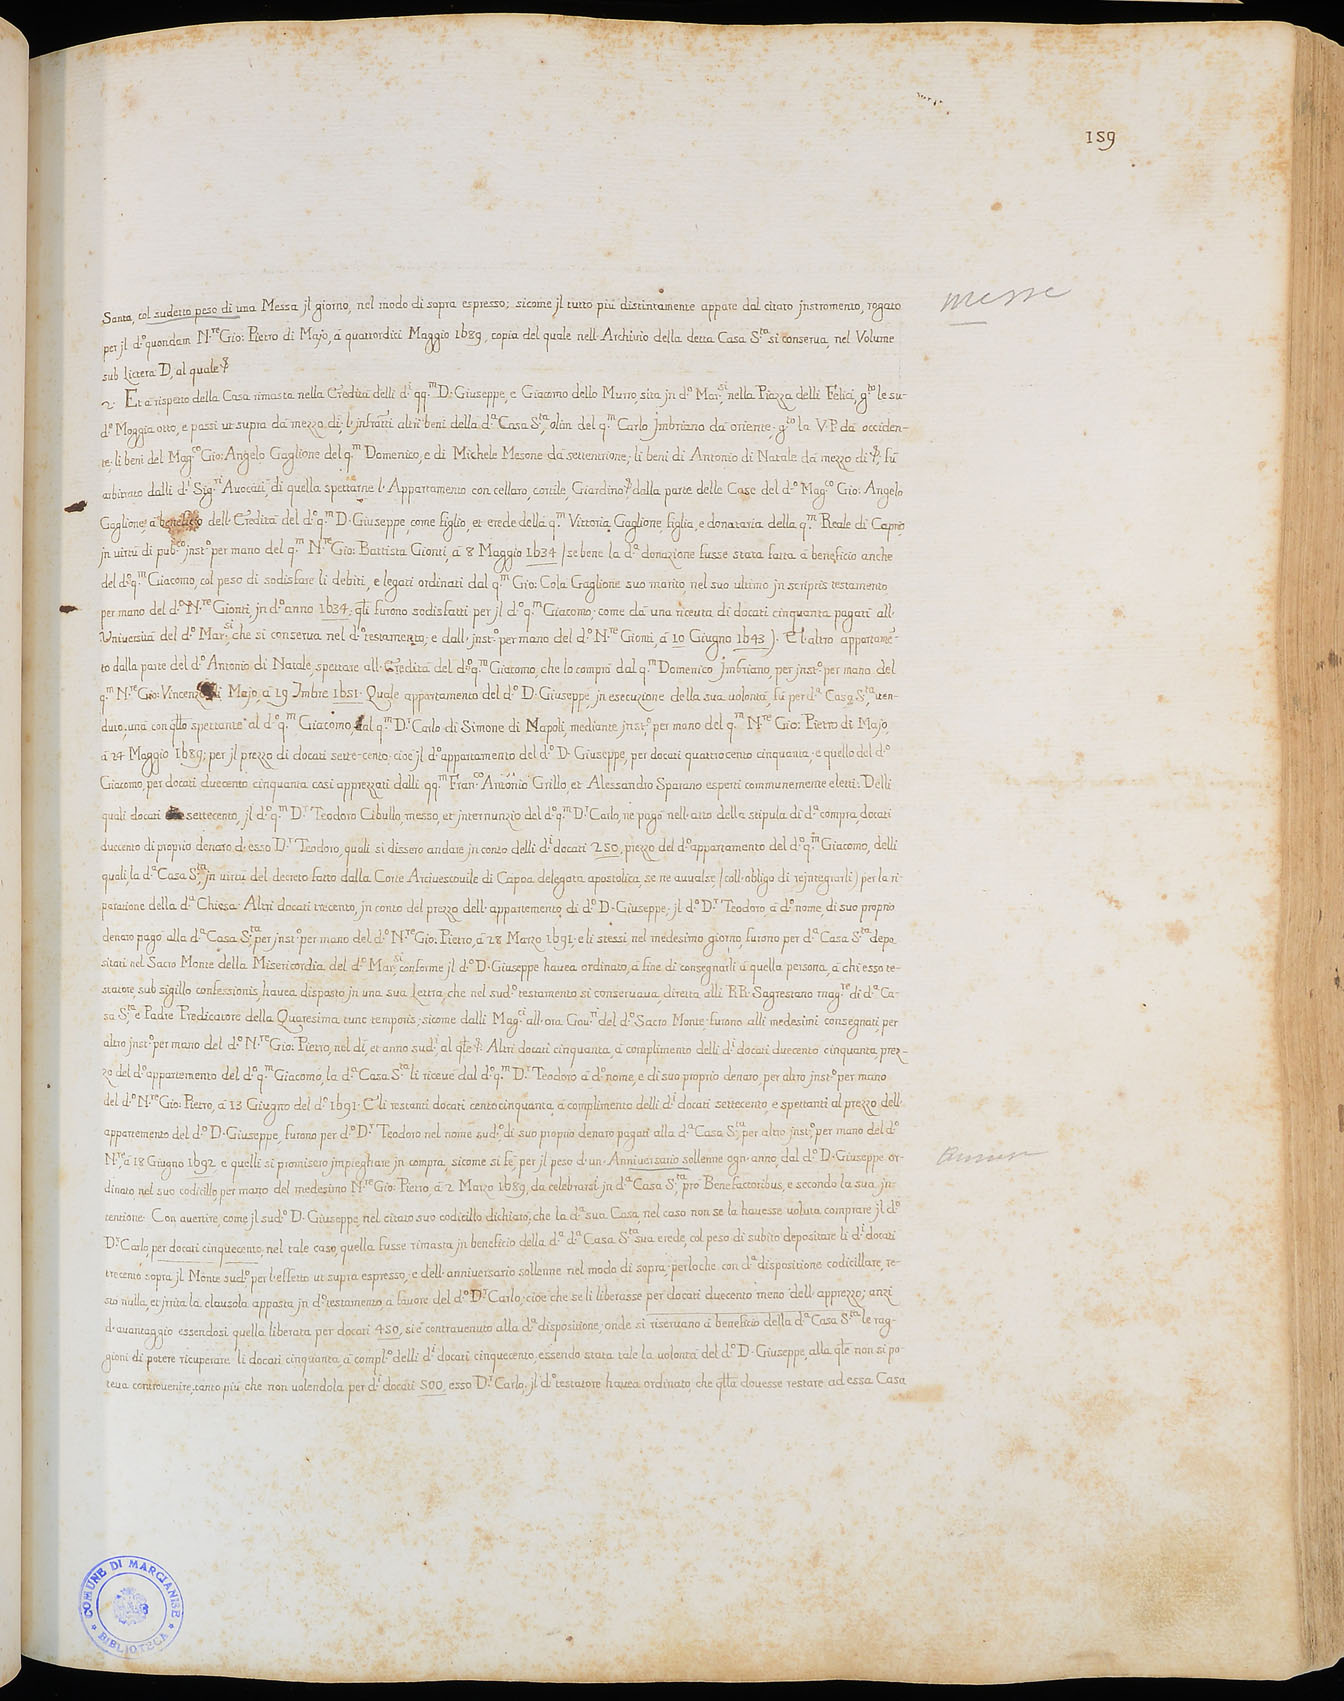 159
messe
Santa, col sudetto peso di una Messa jl giorno, nel modo di sopra espresso; sicome jl tutto più distintamente appare dal citato jnstromento, rogato
per jl d.º quondam N.re Gio: Pietro di Majo, à quattordici Maggio 1689, copia del quale nell'Archivio della detta Casa S.ta si conserua, nel Volume
sub Littera D, al quale
2. Et à rispetto della Casa rimasta nella Eredità delli d.i qq.m D. Giuseppe, e Giacomo dello Mutto, sita jn d.º Mar.si, nella Piazza delli Felici, g.to le su-
d.e Moggia otto, e passi ut supra da mezzo dì; l'jnfratti altri beni della d.a Casa S.ta, olim del q.m Carlo Jmbriano da oriente; g.to la V.P. da occiden-
te; li beni del Mag.co Gio: Angelo Gaglione del q.m Domenico, e di Michele Mesone da settentrione; li beni di Antonio di Natale da mezzo dì, fù
arbitrato dalli d.i Sig.ri Auocati, di quella spettarne l'Appartamento con cellaro, cortile, Giardino dalla parte delle Case del d.º Mag.co Gio: Angelo
Gaglione, à beneficio dell'Eredità del d.º q.m D. Giuseppe, come figlio, et erede della q.m Vittoria Gaglione, figlia, e donataria della q.m Reale di Caprio,
jn virtù di pub.co jnst.º per mano del q.m N.re Gio: Battista Gionti, à 8 Maggio 1634 /se bene la d.a donazione fusse stata fatta à beneficio anche
del d.º q.m Giacomo, col peso di sodisfare li debiti, e legati ordinati dal q.m Gio: Cola Gaglione suo marito, nel suo ultimo jn scriptis testamento
per mano del d.º N.re Gionti, jn d.º anno 1634; q̃li furono sodisfatti per jl d.º q.m Giacomo; come da una riceuta di docati cinquanta pagati all'
Università del d.º Mar.si, che si conserva nel d.º testamento; e dall'jnst.º per mano del d.º N.re Gionti, à 10 Giugno 1643). E l'altro appartamē-
to dalla parte del d.º Antonio di Natale, spettare all'Eredità del d.º q.m Giacomo, che lo comprà dal q.m Domenico Jmbriano, per jnst.º per mano del
q.m N.re Gio: Vincenzo di Majo, à 19 Jmbre 1651. Quale appartamento del d.º D. Giuseppe, jn esecuzione della sua volontà, fù per d.a Casa S.ta ven-
duto, una con q̃llo spettante al d.º q.m Giacomo, al q.m D.r Carlo di Simone di Napoli, mediante jnst.º per mano del q.m N.re Gio: Pietro di Majo,
à 24 Maggio 1689; per jl prezzo di docati sette-cento; cioe jl d.º appartamento del d.º D. Giuseppe, per docati quattrocento cinquanta; e quello del d.º
Giacomo, per docati duecento cinquanta così apprezzati dalli qq.m Fran.co Antonio Grillo, et Alessandro Sparano esperti communemente eletti. Delli
quali docati settecento, jl d.º q.m D.r Teodoro Cibullo, messo, et jnternunzio del d.º q.m D.r Carlo, ne pagò nell'atto della stipula di d.a compra, docati
duecento di proprio denaro d'esso D.r Teodoro, quali si dissero andare jn conto delli d.i docati 250, prezzo del d.º appartamento del d.º q.m Giacomo, delli
quali, la d.a Casa S.ta, jn virtù del decreto fatto dalla Corte Arciuescouile di Capoa delegata apostolica, se ne auualse /coll'obligo di rejntegrarli) per la ri-
paratione della d.a Chiesa. Altri docati trecento, jn conto del prezzo dell'appartamento di d.º D. Giuseppe; jl d.º D.r Teodoro, à d.º nome, di suo proprio
denaro pagò alla d.a Casa S.ta, per jnst.º per mano del d.º N.re Gio: Pietro, à 28 Marzo 1691; e li stessi, nel medesimo giorno, furono per d.a Casa S.ta depo
sitati nel Sacro Monte della Misericordia del d.º Mar.si, conforme jl d.º D. Giuseppe hauea ordinato, à fine di consegnarli à quella persona, à chi esso te-
statore, sub sigillo confessionis, hauea disposto jn una sua Lettera, che nel sud.º testamento si conseruaua, diretta alli RR. Sagrestano mag.re di d.a Ca-
sa S.ta, e Padre Predicatore della Quaresima tunc temporis; sicome dalli Mag.ci all'ora Gou.ri del d.º Sacro Monte furono alli medesimi consegnati, per
altro jnst.º per mano del d.º N.re Gio: Pietro, nel dì, et anno sud.i, al q̃le. Altri docati cinquanta, à complimento delli d.i docati duecento cinquanta, prez-
zo del d.º appartamento del d.º q.m Giacomo, la d.a Casa S.ta li riceuè dal d.º q.m D.r Teodoro à d.º nome, e di suo proprio denaro, per altro jnst.º per mano
del d.º N.re Gio: Pietro, à 13 Giugno del d.º 1691. E li restanti docati centocinquanta, à complimento delli d.i docati settecento, e spettanti al prezzo dell'
appartamento del d.º D. Giuseppe, furono per d.º D.r Teodoro nel nome sud.º, di suo proprio denaro pagati alla d.a Casa S.ta, per altro jnst.º per mano del d.º
N.re, à 18 Giugno 1692, e quelli si promisero jmpieghare jn compra, sicome si fè, per jl peso d'un Anniuersario sollenne ogn'anno, dal d.º D. Giuseppe or-
dinato nel suo codicillo, per mano del medesimo N.re Gio: Pietro, à 2 Marzo 1689, da celebrarsi jn d.a Casa S.ta, pro Benefattoribus, e secondo la sua jn-
tentione. Con auertire, come jl sud.º D. Giuseppe, nel citato suo codicillo dichiarò; che la d.a sua Casa, nel caso non se la hauesse voluta comprare jl d.º
D.r Carlo, per docati cinquecento, nel tale caso, quella fusse rimasta jn beneficio della d.a d.a Casa S.ta sua erede, col peso di subito depositare li d.i docati
trecento sopra jl Monte sud.º per l'effetto ut supra espresso; e dell'anniuersario sollenne nel modo di sopra; perloche con d.a dispositione codicillare, re-
stò nulla, et jrrita la clausola apposta jn d.º testamento à fauore del d.º D.r Carlo; cioè che se li liberasse per docati duecento meno dell'apprezzo; anzi
d'auantaggio essendosi quella liberata per docati 450, si è contrauenuto alla d.a dispositione; onde si riseruano à beneficio della d.a Casa S.ta le rag-
gioni di potere ricuperare li docati cinquanta, à compl.º delli d.i docati cinquecento, essendo stata tale la volontà del d.º D. Giuseppe, alla q̃le non si po
teua controuenire; tanto più che non volendola per d.i docati 500, esso D.r Carlo, jl d.º testatore hauea ordinato, che q̃lla douesse restare ad essa Casa
COMUNE DI MARCIANISE
BIBLIOTECA